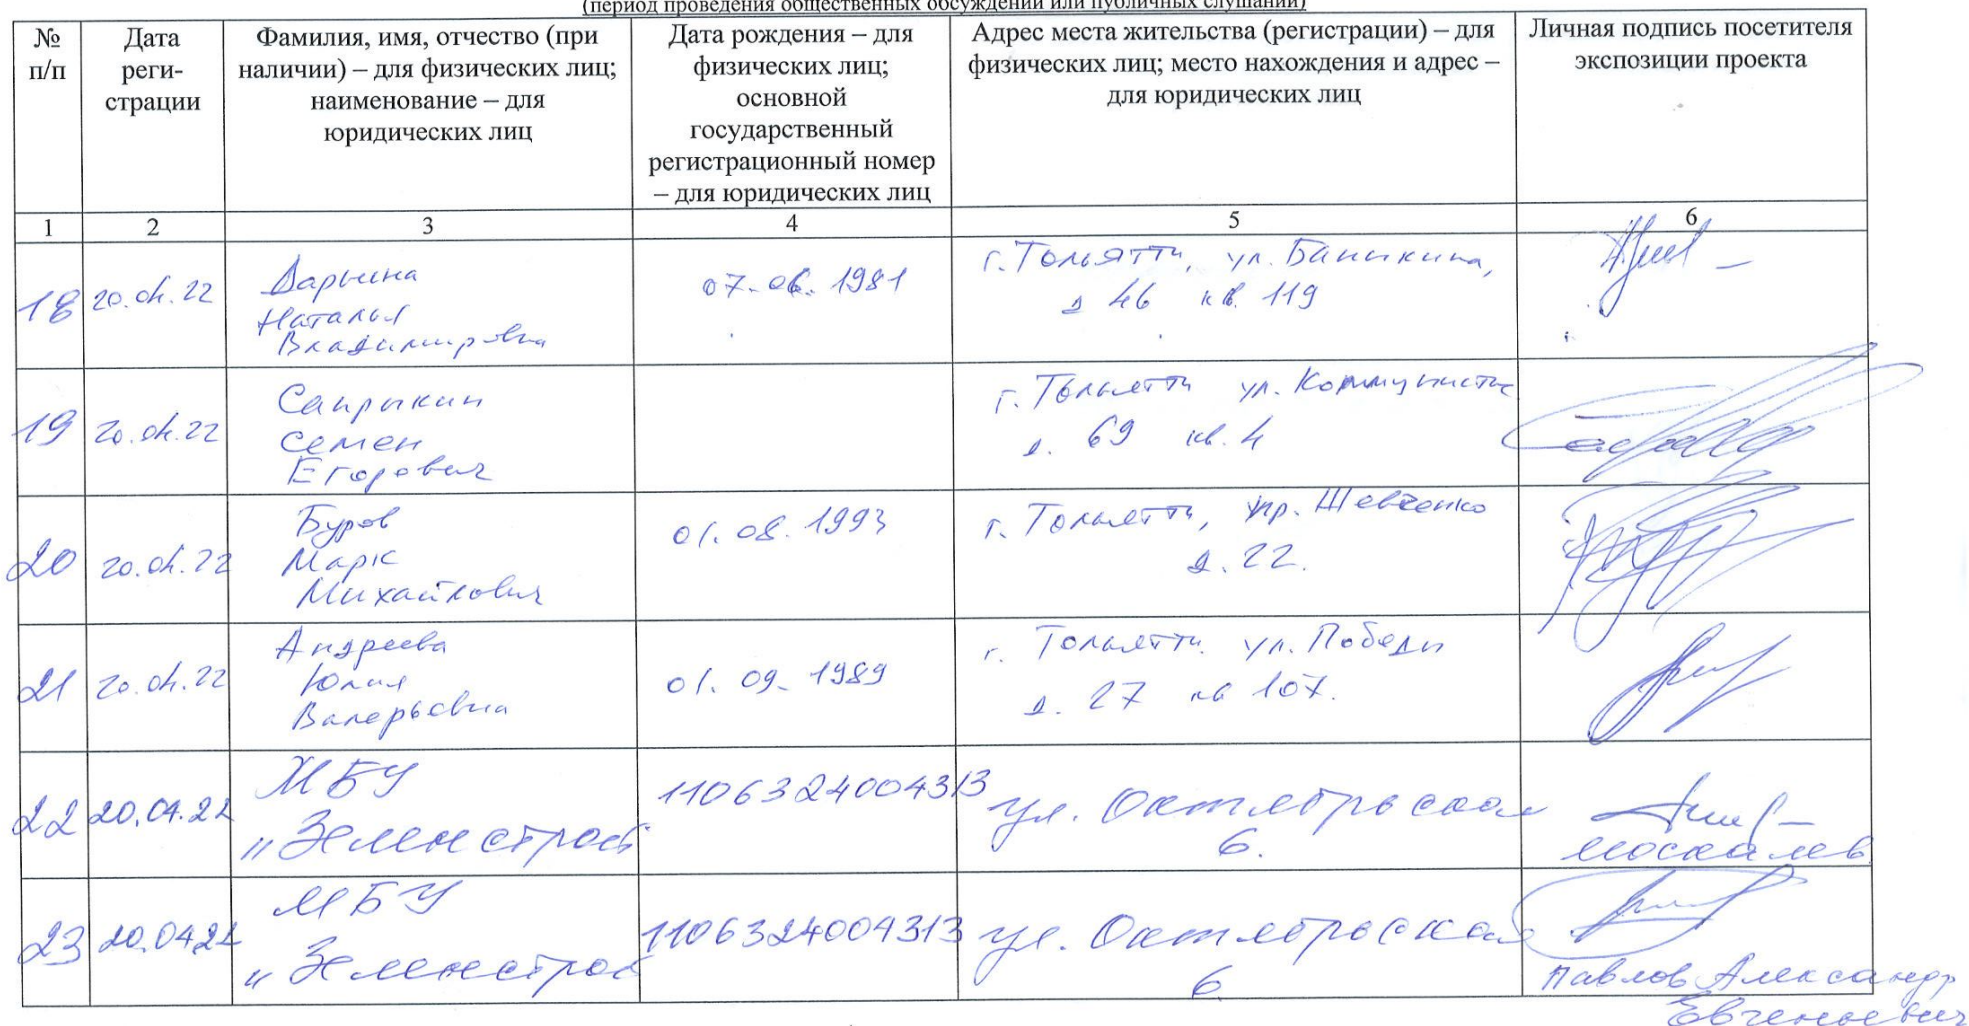 (период проведения общественных обсуждений или публичных слушаний)
№ п/п
Дата реги-
страции
Фамилия, имя, отчество (при
наличии) – для физических лиц;
наименование – для
юридических лиц
Дата рождения – для
физических лиц;
основной
государственный
регистрационный номер
– для юридических лиц
Адрес места жительства (регистрации) – для
физических лиц; место нахождения и адрес –
для юридических лиц
Личная подпись посетителя
экспозиции проекта
1 2 3 4 5 6
18 20.04.22
Дарьина
Наталья
Владимировна
07.06.1981
г. Тольятти, ул. Баныкина,
д 46 кв. 119
19 20.04.22
Сапрыкин
Семен
Егорович
г. Тольятти ул. Коммунистич
д. 69 кв. 4
20 20.04.22
Буров
Марк
Михайлович
01.08.1993
г. Тольятти, пр. Шевченко
д. 22.
21 20.04.22
Андреева
Юлия
Валерьевна
01.09.1989
г. Тольятти ул. Победы
д. 27 кв 107.
22 20.04.22
МБУ
"Зеленстрой
1106324004313
ул. Октябрьская
6.
Москалев
23 20.04.22
МБУ
"Зеленстрой
1106324004313
ул. Октябрьская
6
Павлов Александр
Евгеньевич